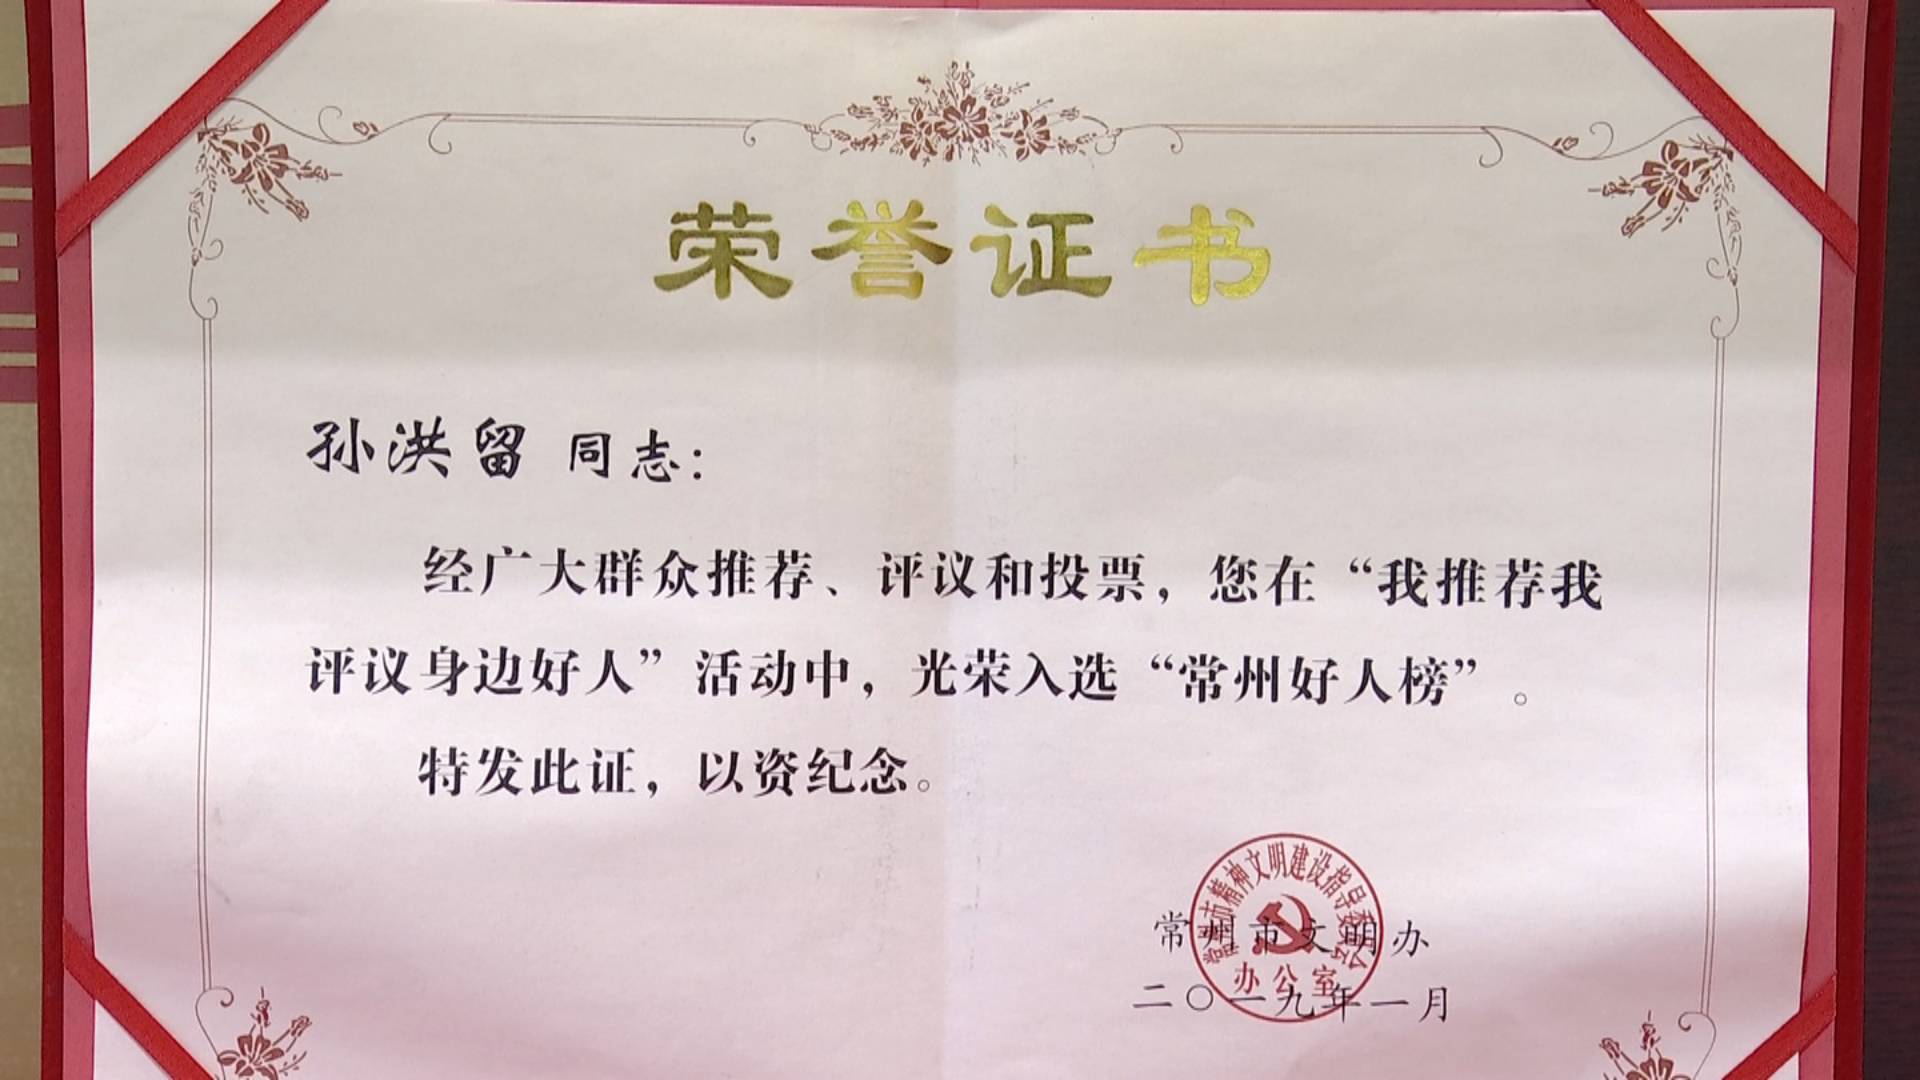 荣誉证书
孙洪留 同志：
经广大群众推荐、评议和投票，您在“我推荐我
评议身边好人”活动中，光荣入选“常州好人榜”。
特发此证，以资纪念。
常州市精神文明建设指导委员会
办公室
常州市文明办
二〇一九年一月